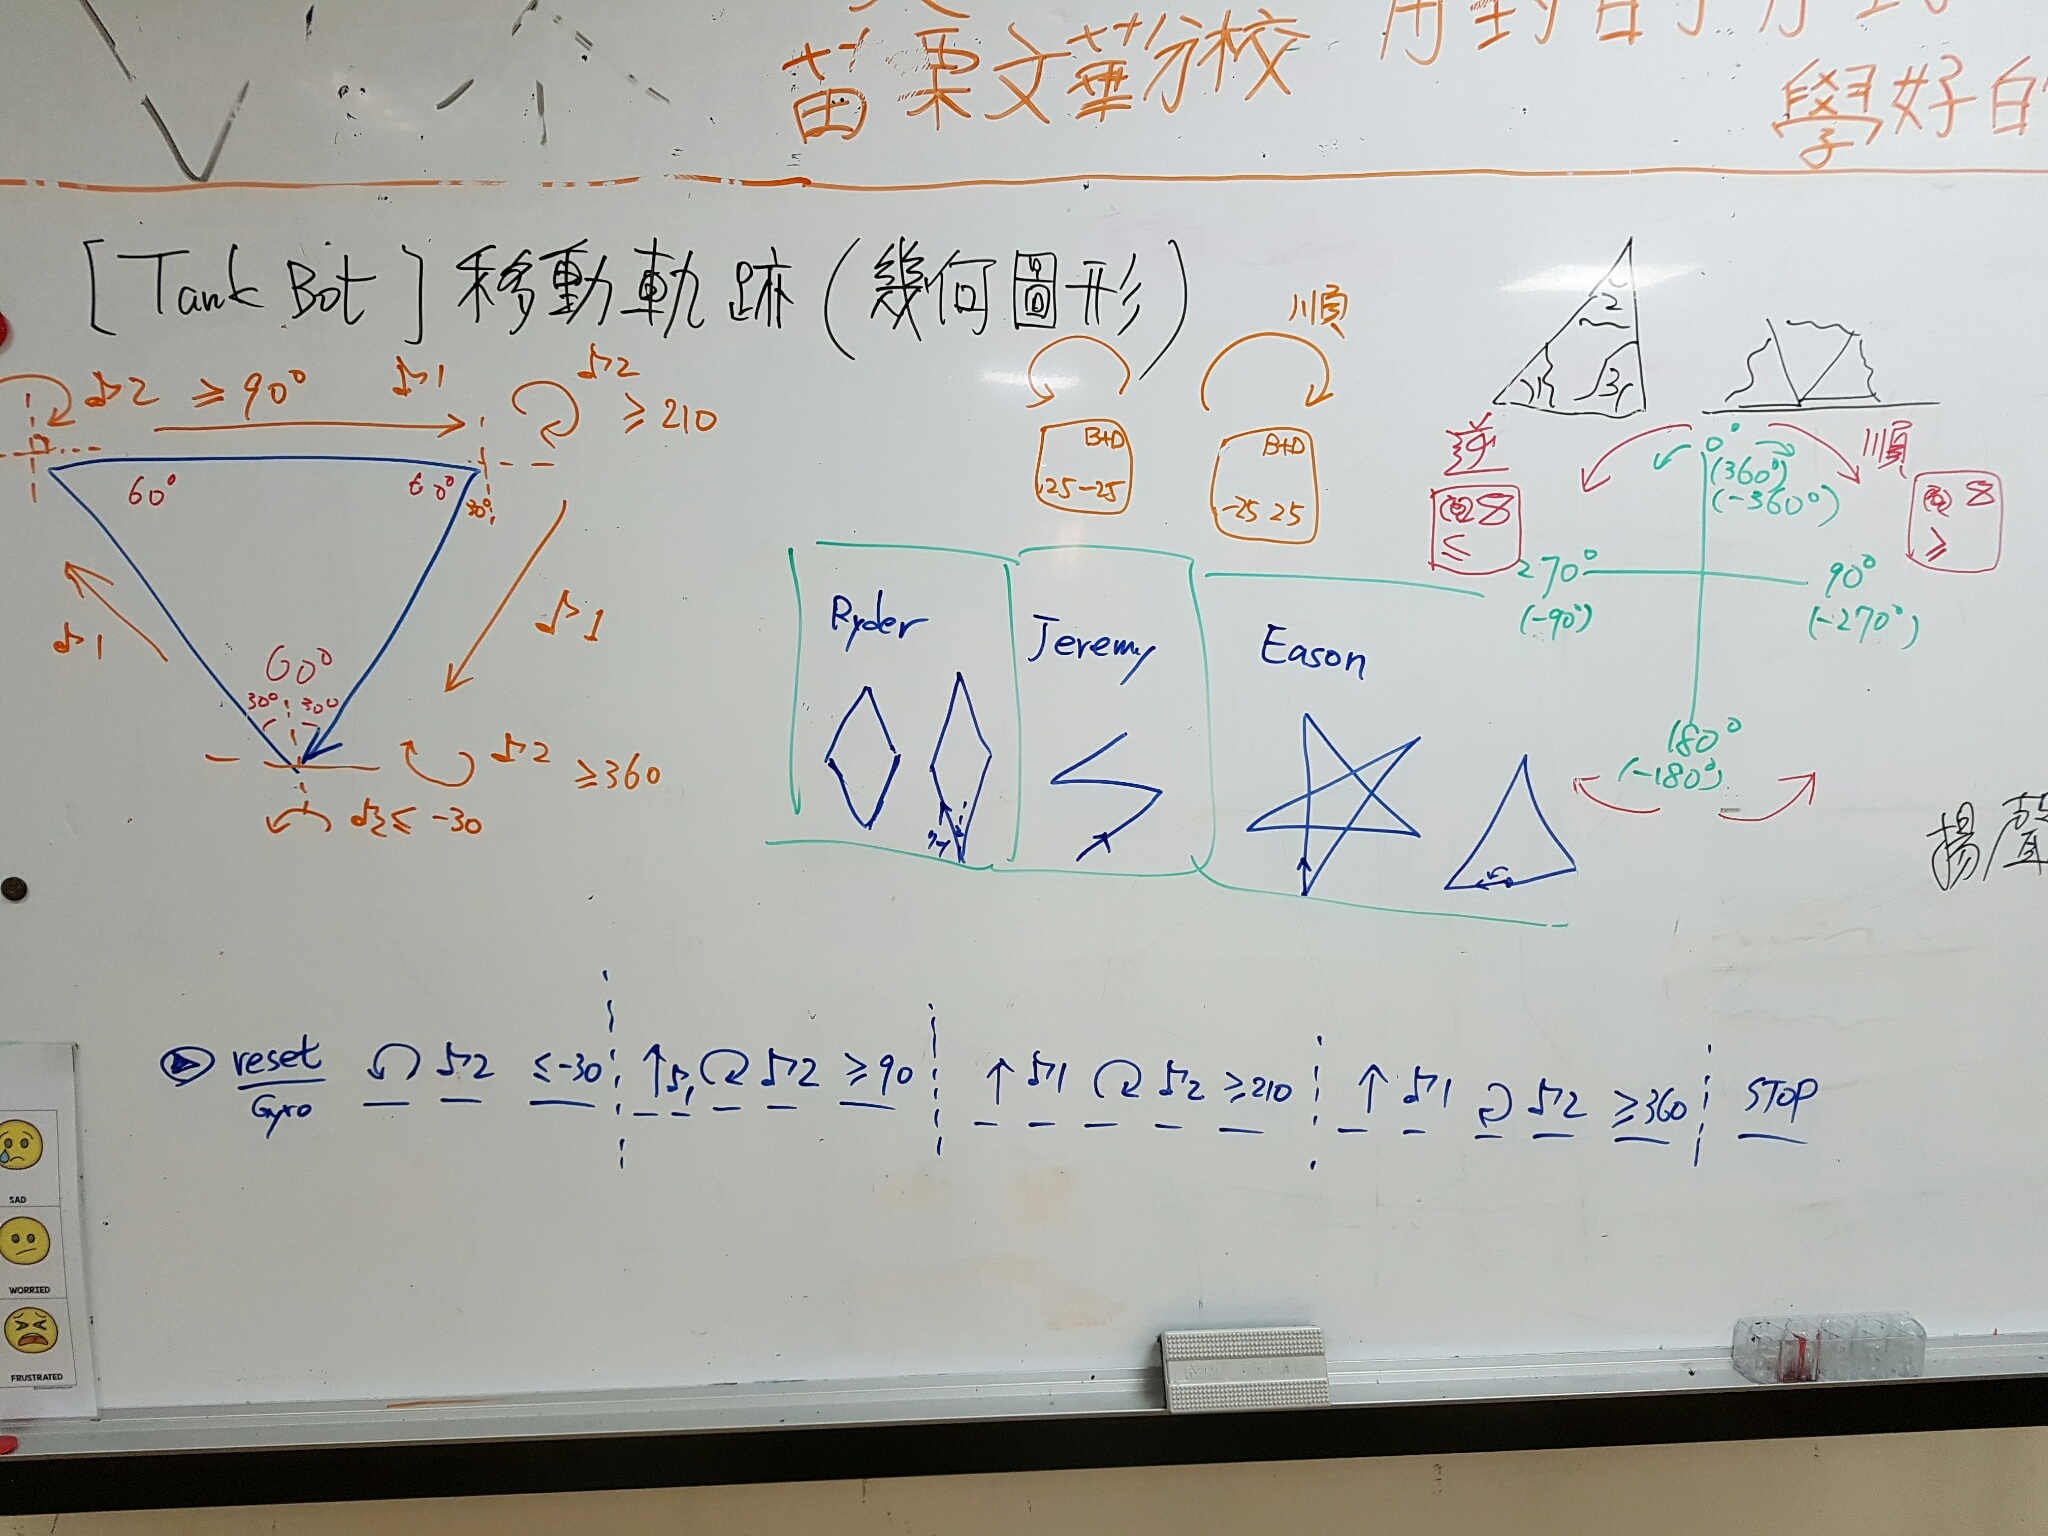 苗栗文華分校
學好的
[Tank Bot] 移動軌跡 (幾何圖形)
♪2 ≥90°
♪1
♪2
≥210
60°
60°
30°
♪1
♪1
60°
30° 30°
♪2 ≥360
♪2 ≤ -30
順
B+D
25 -25
B+D
-25 25
1
2
3
逆
8
≤
0°
(360°)
(-360°)
順
8
≥
270°
(-90°)
90°
(-270°)
180°
(-180°)
Ryder
Jeremy
Eason
揚聲
reset
Gyro
♪2 ≤-30
↑ ♪1 ♪2 ≥90
↑ ♪1 ♪2 ≥210
↑ ♪1 ♪2 ≥360
STOP
SAD
WORRIED
FRUSTRATED